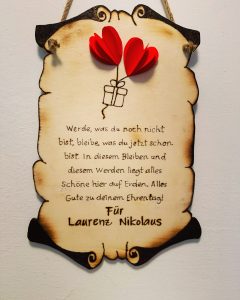 Werde, was du noch nicht
bist, bleibe, was du jetzt schon
bist. In diesem Bleiben und
diesem Werden liegt alles
Schöne hier auf Erden. Alles
Gute zu deinem Ehrentag!
Für
Laurenz Nikolaus